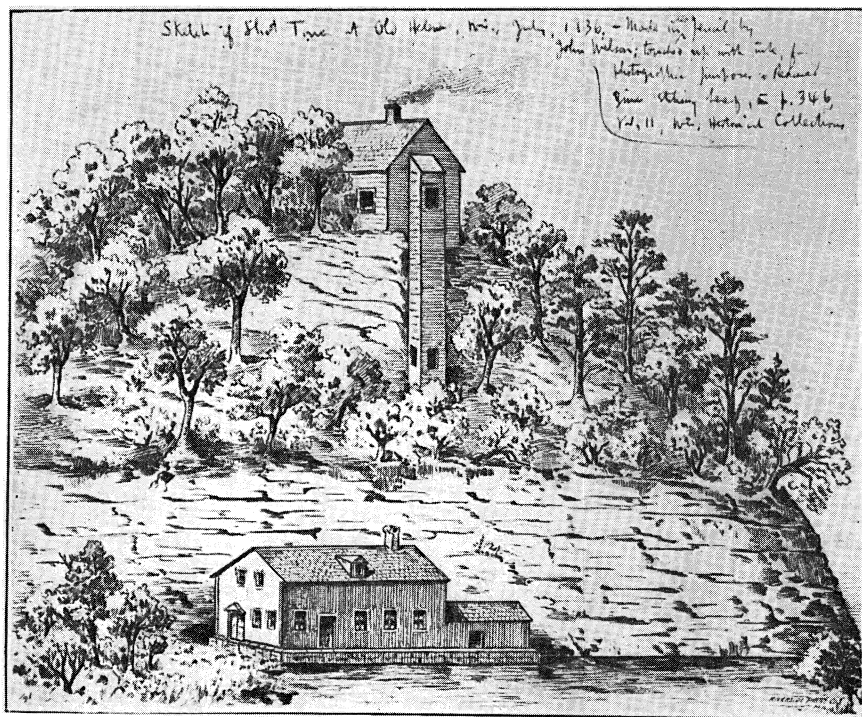 Sketch of Shot Tower at Old Helena, Wis., July, 1836. – Made in pencil by
John Wilson; traced up with ink, for
photographic purposes & reduced
from etching facing p. 346,
Vol. 11, Wis. Historical Collections